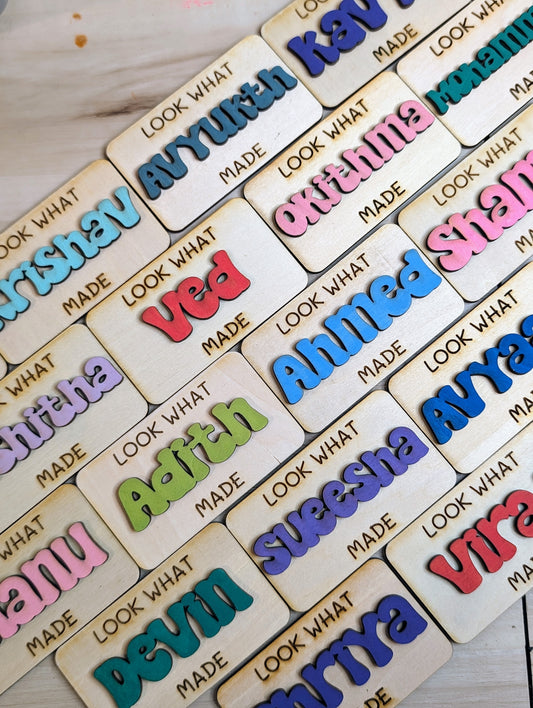 KAV
MADE
LOOK WHAT
AVYUKth
MADE
LOOK WHAT
MOhamm
MA
LOOK WHAT
OKithma
MADE
LOOK WHAT
rishav
MADE
LOOK WHAT
Sham
MA
LOOK WHAT
Ved
MADE
LOOK WHAT
Ahmed
MADE
LOOK WHAT
shitha
MADE
LOOK WHAT
AVyaa
MA
LOOK WHAT
Adith
MADE
LOOK WHAT
Sueesha
MADE
WHAT
anu
MADE
LOOK WHAT
Vira
MA
LOOK WHAT
Devin
MADE
LOOK WHAT
hriya
MADE